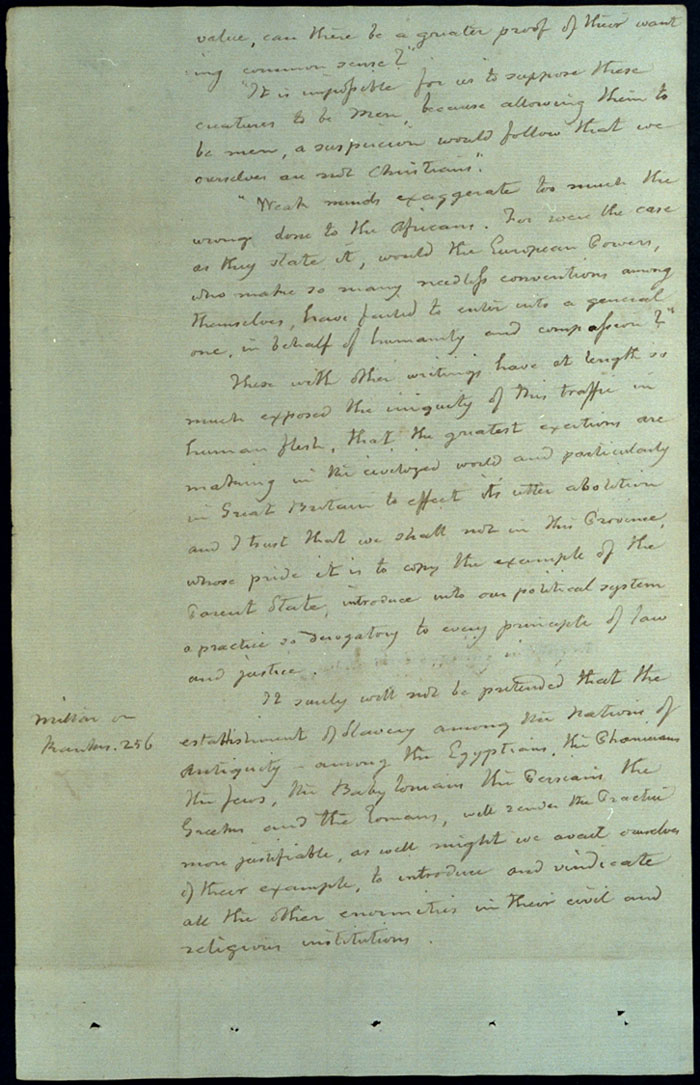 value, can there be a greater proof of their want
ing common sense?"
"It is impossible for us to suppose these
creatures to be Men, because allowing them to
be men, a suspicion would follow that we
ourselves are not Christians".
"Weak minds exaggerate too much the
wrong done to the Africans. For were the case
as they state it, would the European Powers,
who make so many needless conventions among
themselves, have failed to enter into a general
one, in behalf of humanity and compassion?"
These with other writings have at length so
much exposed the iniquity of this traffic in
human flesh, that the greatest exertions are
making in the civilized world and particularly
in Great Britain to effect its utter abolition
and I trust that we shall not in this Province,
whose pride it is to copy the example of the
Parent State, introduce into our political system
a practice so derogatory to every principle of law
and justice.
It surely will not be pretended that the
Millar on
Ranks. 256
establishment of Slavery among the Nations of
Antiquity – among the Egyptians, the Phœnicians
the Jews, the Babylonians the Persians the
Greeks and the Romans, will render the Practice
more justifiable, as well might we avail ourselves
of their example, to introduce and vindicate
all the other enormities in their civil and
religious institutions.